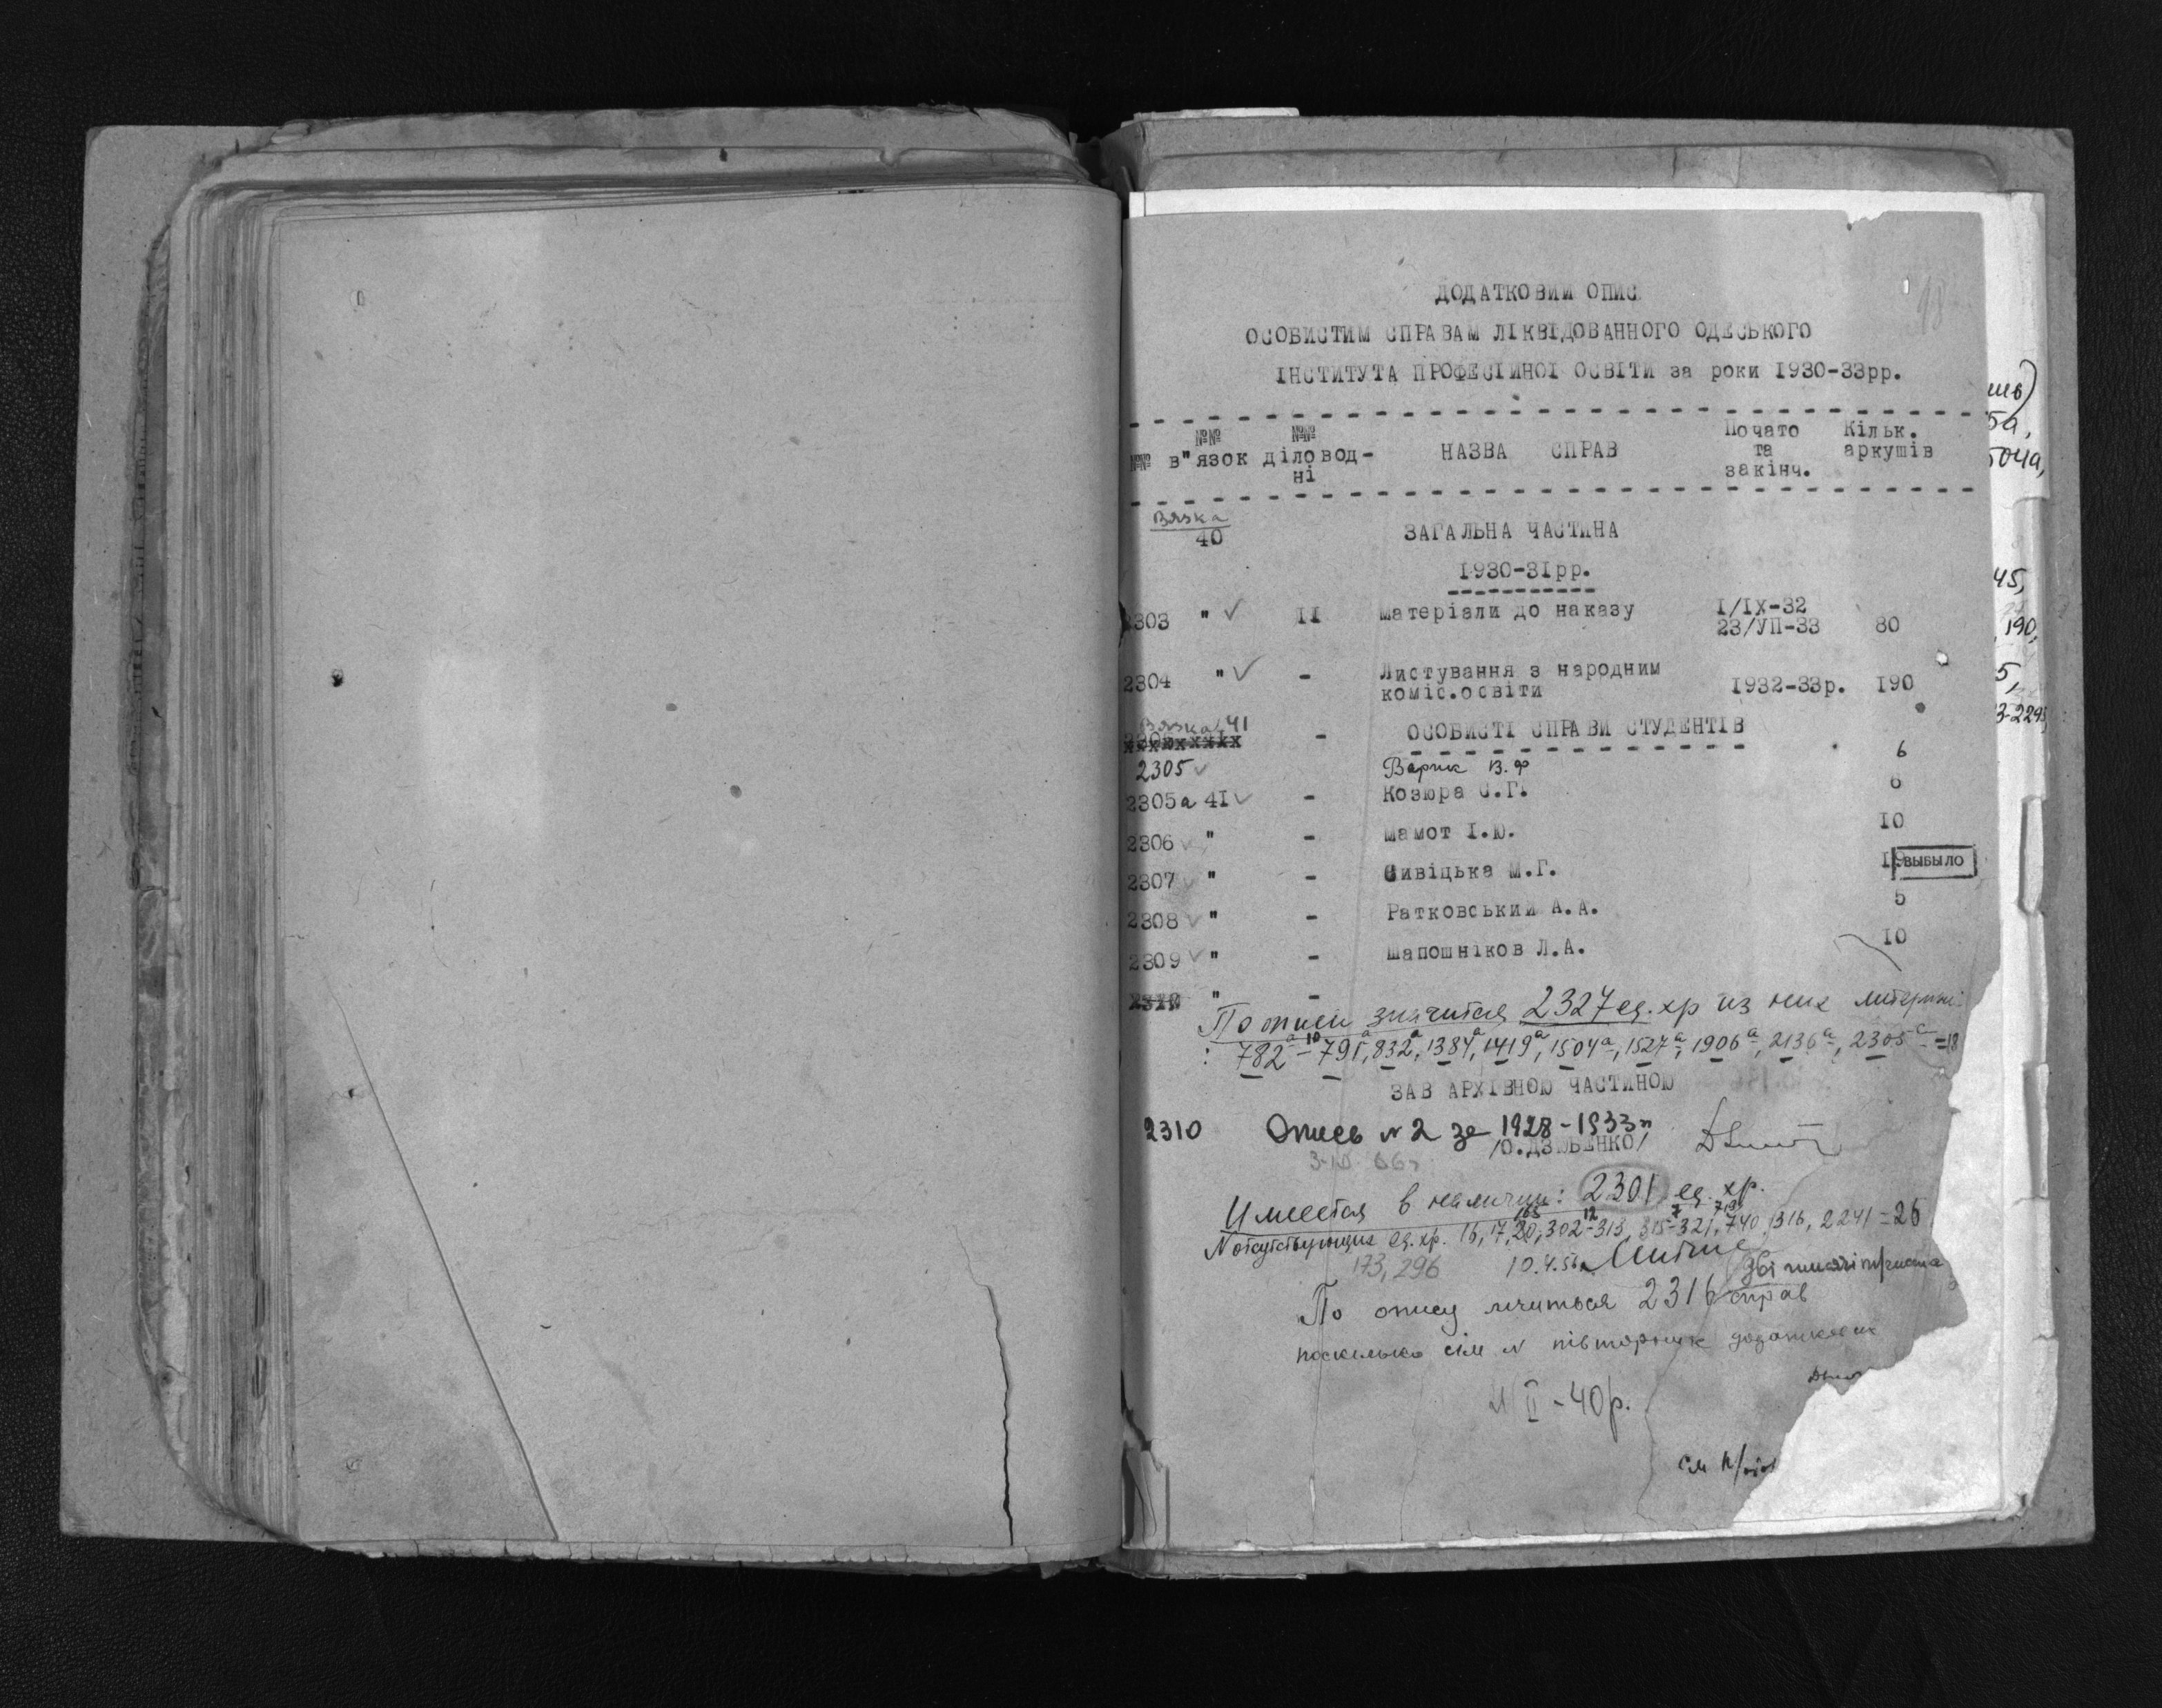 98
ДОДАТКОВИЙ ОПИС
ОСОБИСТИМ СПРАВАМ ЛІКВІДОВАННОГО ОДЕСЬКОГО
ІНСТИТУТА ПРОФЕСІЙНОІ ОСВІТИ за роки 1930-33рр.
№№ №№ в"язок №№ діловод-ні НАЗВА СПРАВ Почато та закінч. Кільк. аркушів
Вязка 40
ЗАГАЛЬНА ЧАСТИНА
1930-31рр.
2303 " ✓ II матеріали до наказу I/IX-32 23/УП-33 80
2304 " ✓ - Листування з народним коміс.освіти 1932-33р. 190
Вязка 41
- ОСОБИСТІ СПРАВИ СТУДЕНТІВ
2305 ✓ Варик В.Ф 6
2305а 41 ✓ - Козюра С.Г. 6
2306 ✓ " - Мамот І.Ю. 10
2307 ✓ " - Сивіцька М.Г. 19 ВЫБЫЛО
2308 ✓ " - Ратковський А.А. 5
2309 ✓ " - Шапошніков Л.А. 10
2310 " -
По описи значится 2327 ед. хр из них литерные
: 782а-791а, 832а, 1384а, 1419а, 1504а, 1527а, 1906а, 2136а, 2305а =18
ЗАВ АРХІВНОЮ ЧАСТИНОЮ
2310 Опись №2 за 1928-1933гг
/О.ДЗЮБЕНКО/
Имеется в наличии: 2301 ед. хр.
N отсутствующие ед. хр. 16, 17, 20, 302-313, 315-321, 740, 1316, 2241 =26
173, 296 10.4.56г
По опису лічиться 2316 справ
поскілько сім №
II-40р.
см
5а,
504а,
45,
190,
5,
3-2295